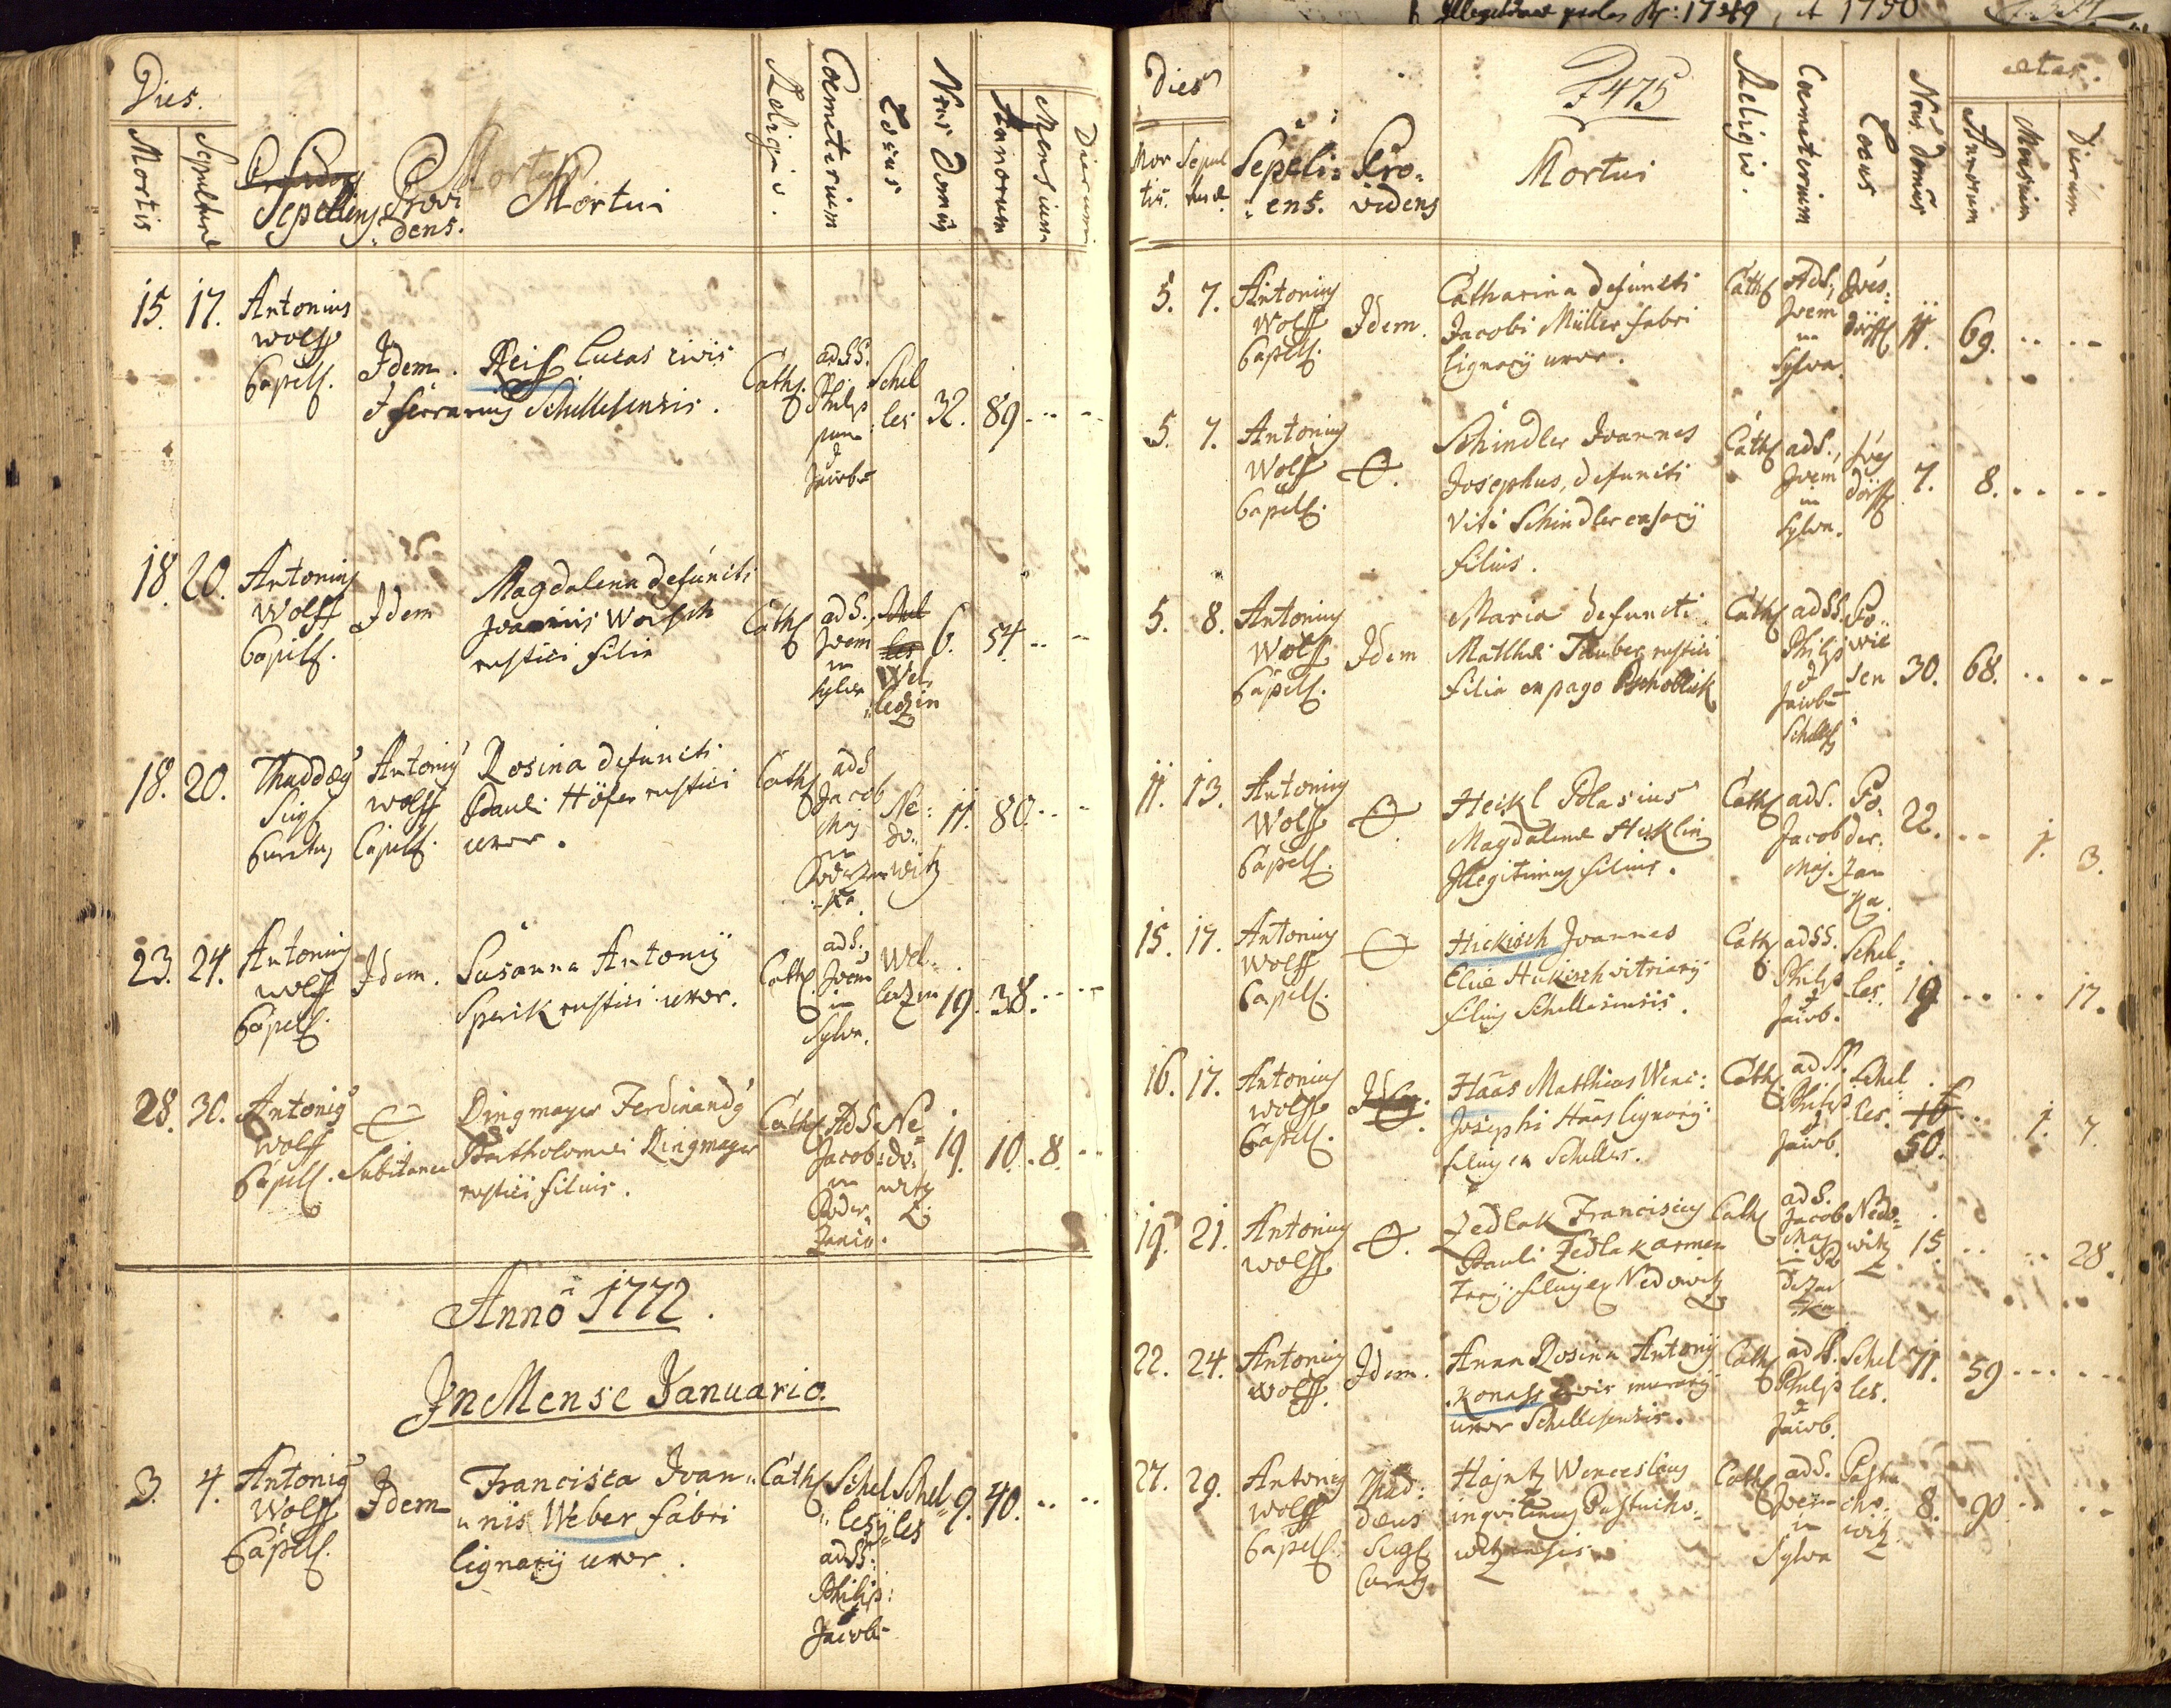 Illegitimae proles Nr: 1749, et 1750
Dies.
Mortis
Sepulturae
Sepeliens
Provi
dens.
Mortui
Religio.
Coemeterium
Locus
Nrus Domus
Annorum
Mensium
Dierum
15. 17. Antonius
Wolff
Capell.
Idem. Reiss Lucas civis
et serrarius Schellesensis.
Cath.
ad SS.
Philip
pum
et
Jacob
Schel
les
32. 89. .. ..
18. 20. Antonius
Wolff
Capell.
Idem
Magdalena defuncti
Joannis Worsch
rustici filia
Cath
ad S.
Joem
in
sylva
Wel
ledzin
6. 54. .. ..
18. 20. Thaddaeus
Curatus
Antonius
Wolff
Capell.
Rosina defuncti
Pauli Höfer rustici
uxor.
Cath
ad S
Jacob
Maj
in
Ne:
do:
witz
11. 80. .. ..
23. 24. Antonius
Wolff
Capell.
Idem.
Susanna Antonij
Sperik rustici uxor.
Cath.
ad S.
Joem
in
Sylva.
Wel
ledzin
19. 38. .. ..
28. 30. Antonius
Wolff
Capell.
Subitanea
Dingmayer Ferdinandus
Bartholomei Dingmayer
rustici filius.
Cath
Ad S
Jacob
in
Poder
zanio.
Ne
do:
witz
19. 10. 8. ..
Annô 1772.
In Mense Januario.
3. 4. Antonius
Wolff
Capell.
Idem
Francisca Joan
nis Weber fabri
lignarij uxor.
Cath
Schel
lesij
ad SS:
Philip:
Jacob
Schel
les
9. 40. .. ..
Dies
Mor
tis.
Sepul
turae
Sepeli
ens.
Pro:
videns
F475
Mortui
Religio.
Coemeterium
Locus
Nrus domus
aetas.
Annorum
Mensium
Dierum
5. 7. Antonius
Wolff
Capell.
Idem.
Catharina defuncti
Jacobi Müller fabri
lignarij uxor.
Cath
Ad S.
Joem
in
Sylva
dörffl
11. 69. .. ..
5. 7. Antonius
Wolff
Capell.
Schindler Joannes
Josephus, defuncti
Viti Schindler casarij
filius.
Cath
ad S.,
Joem
in
Sylva.
dörffl
7. 8. .. ..
5. 8. Antonius
Wolff
Capell.
Idem
Maria defuncti
Matthei Tauber rustici
filia ex pago Pschoblik
Cath
ad SS.
Philip
et
Jacob
Schelles
Po
wie
sen
30. 68. .. ..
11. 13. Antonius
Wolff
Capell.
Heikl Blasius
Magdalenae Heiklin
Illegitimus filius.
Cath
ad S.
Jacob
Maj.
Po.
der.
zan
ka.
22. .. 1. 3.
15. 17. Antonius
Wolff
Capell.
Hickisch Joannes
Eliae Hickisch vitriarij
filius Schellesensis.
Cath
ad SS.
Philip
et
Jacob.
Schel
les.
19 .. .. 17.
16. 17. Antonius
Wolff
Capell.
Haas Matthias Wenc:
Josephi Haas lignarij
filius ex Schelles.
Cath
ad SS.
Philip
et
Jacob.
Schel
les.
50. .. 1. 7.
19. 21. Antonius
Wolff
Zedlak Franciscus
Pauli Zedlak armen
tarij filius ex Nedowitz
Cath
ad S.
Jacob
Maj
in Po
derzan
ka
Nedo
witz
15. .. .. 28.
22. 24. Antonius
Wolff.
Idem.
Anna Rosina Antonij
Konass civis murarij
uxor Schellesensis.
Cath
ad SS.
Philip
et
Jacob.
Schel
les.
71. 59 .. ..
27. 29. Antonius
Wolff
Capell
Thad:
daeus
Curatus
Hajntz Wenceslaus
inquilinus Pustucho:
witzensis
Cath
ad S.
Joem
in
Sylva
Pastu
cho:
witz
8. 90. .. ..